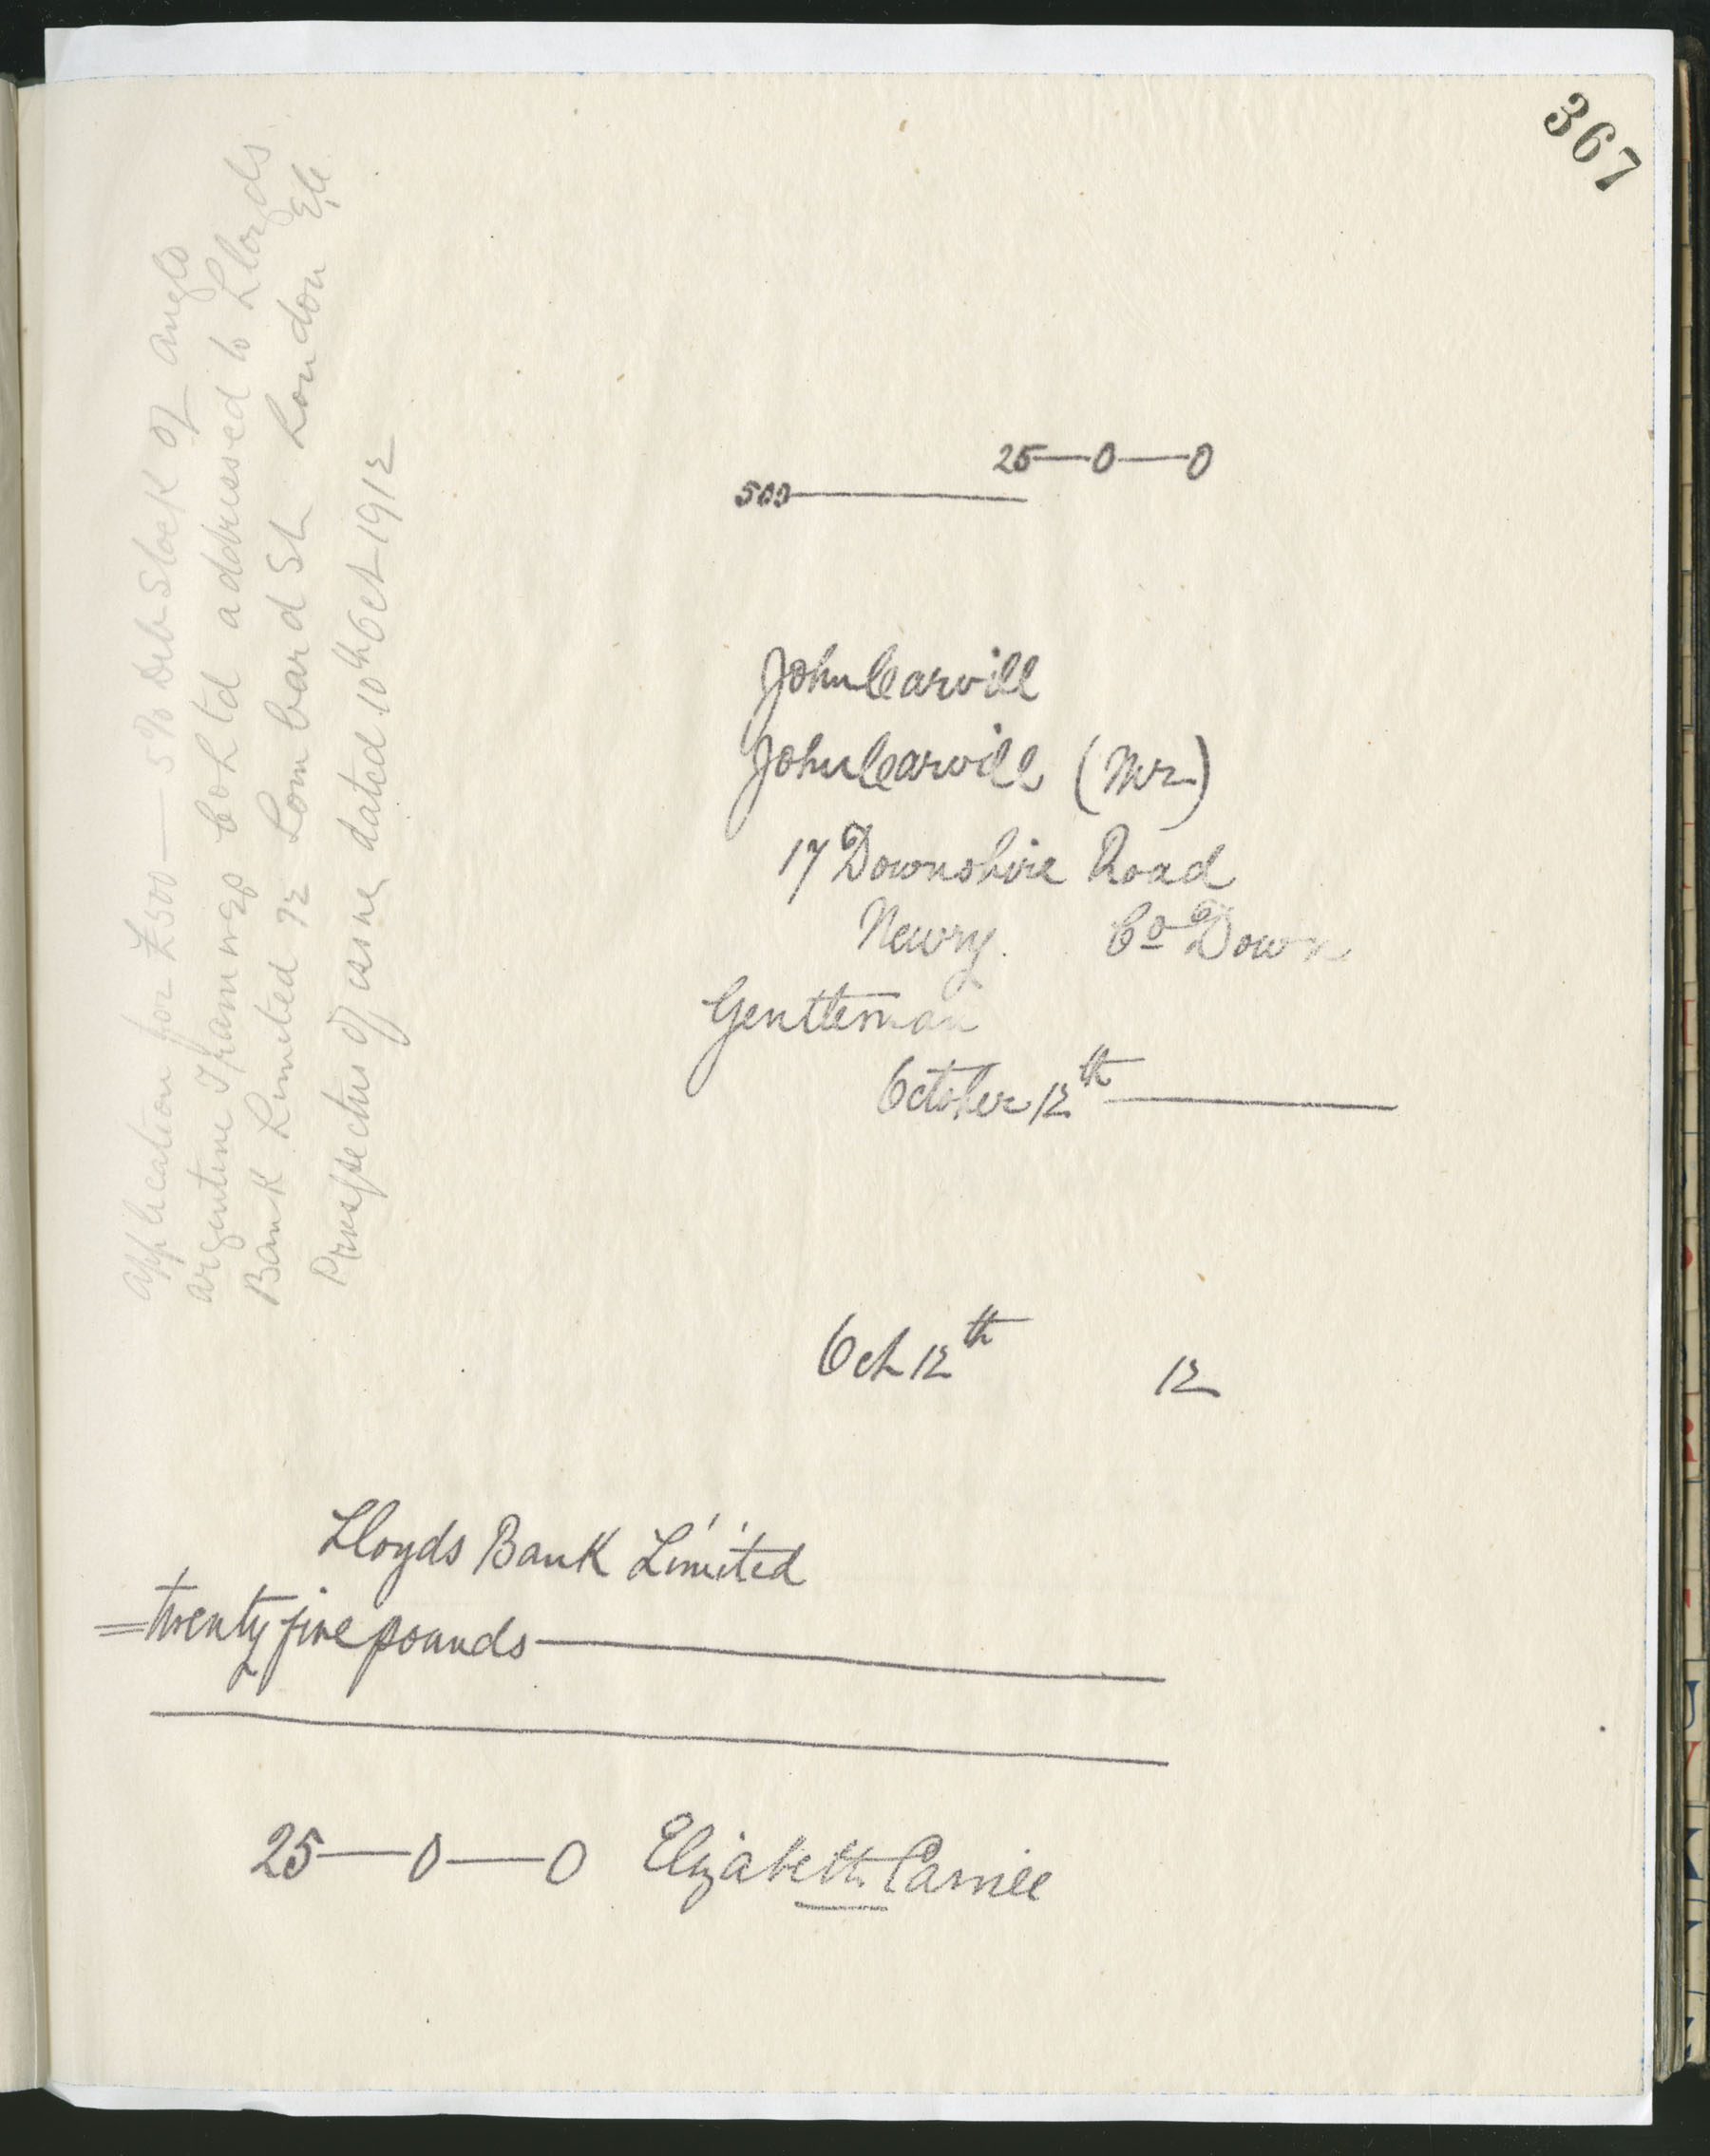 367
Application for £500 — 5% Deb Stock of Anglo
Argentine Tramways Coy Ltd addressed to Lloyds
Bank Limited 72 Lombard St London E,C
Prospectus of issue dated 10th Oct 1912
25—0—0
500—
John Carvill
John Carvill (Mr)
17 Downshire Road
Newry. Co Down
Gentleman
October 12th —
Oct 12th 12
Lloyds Bank Limited
=twenty five pounds—
25—0—0 Elizabeth Carvill